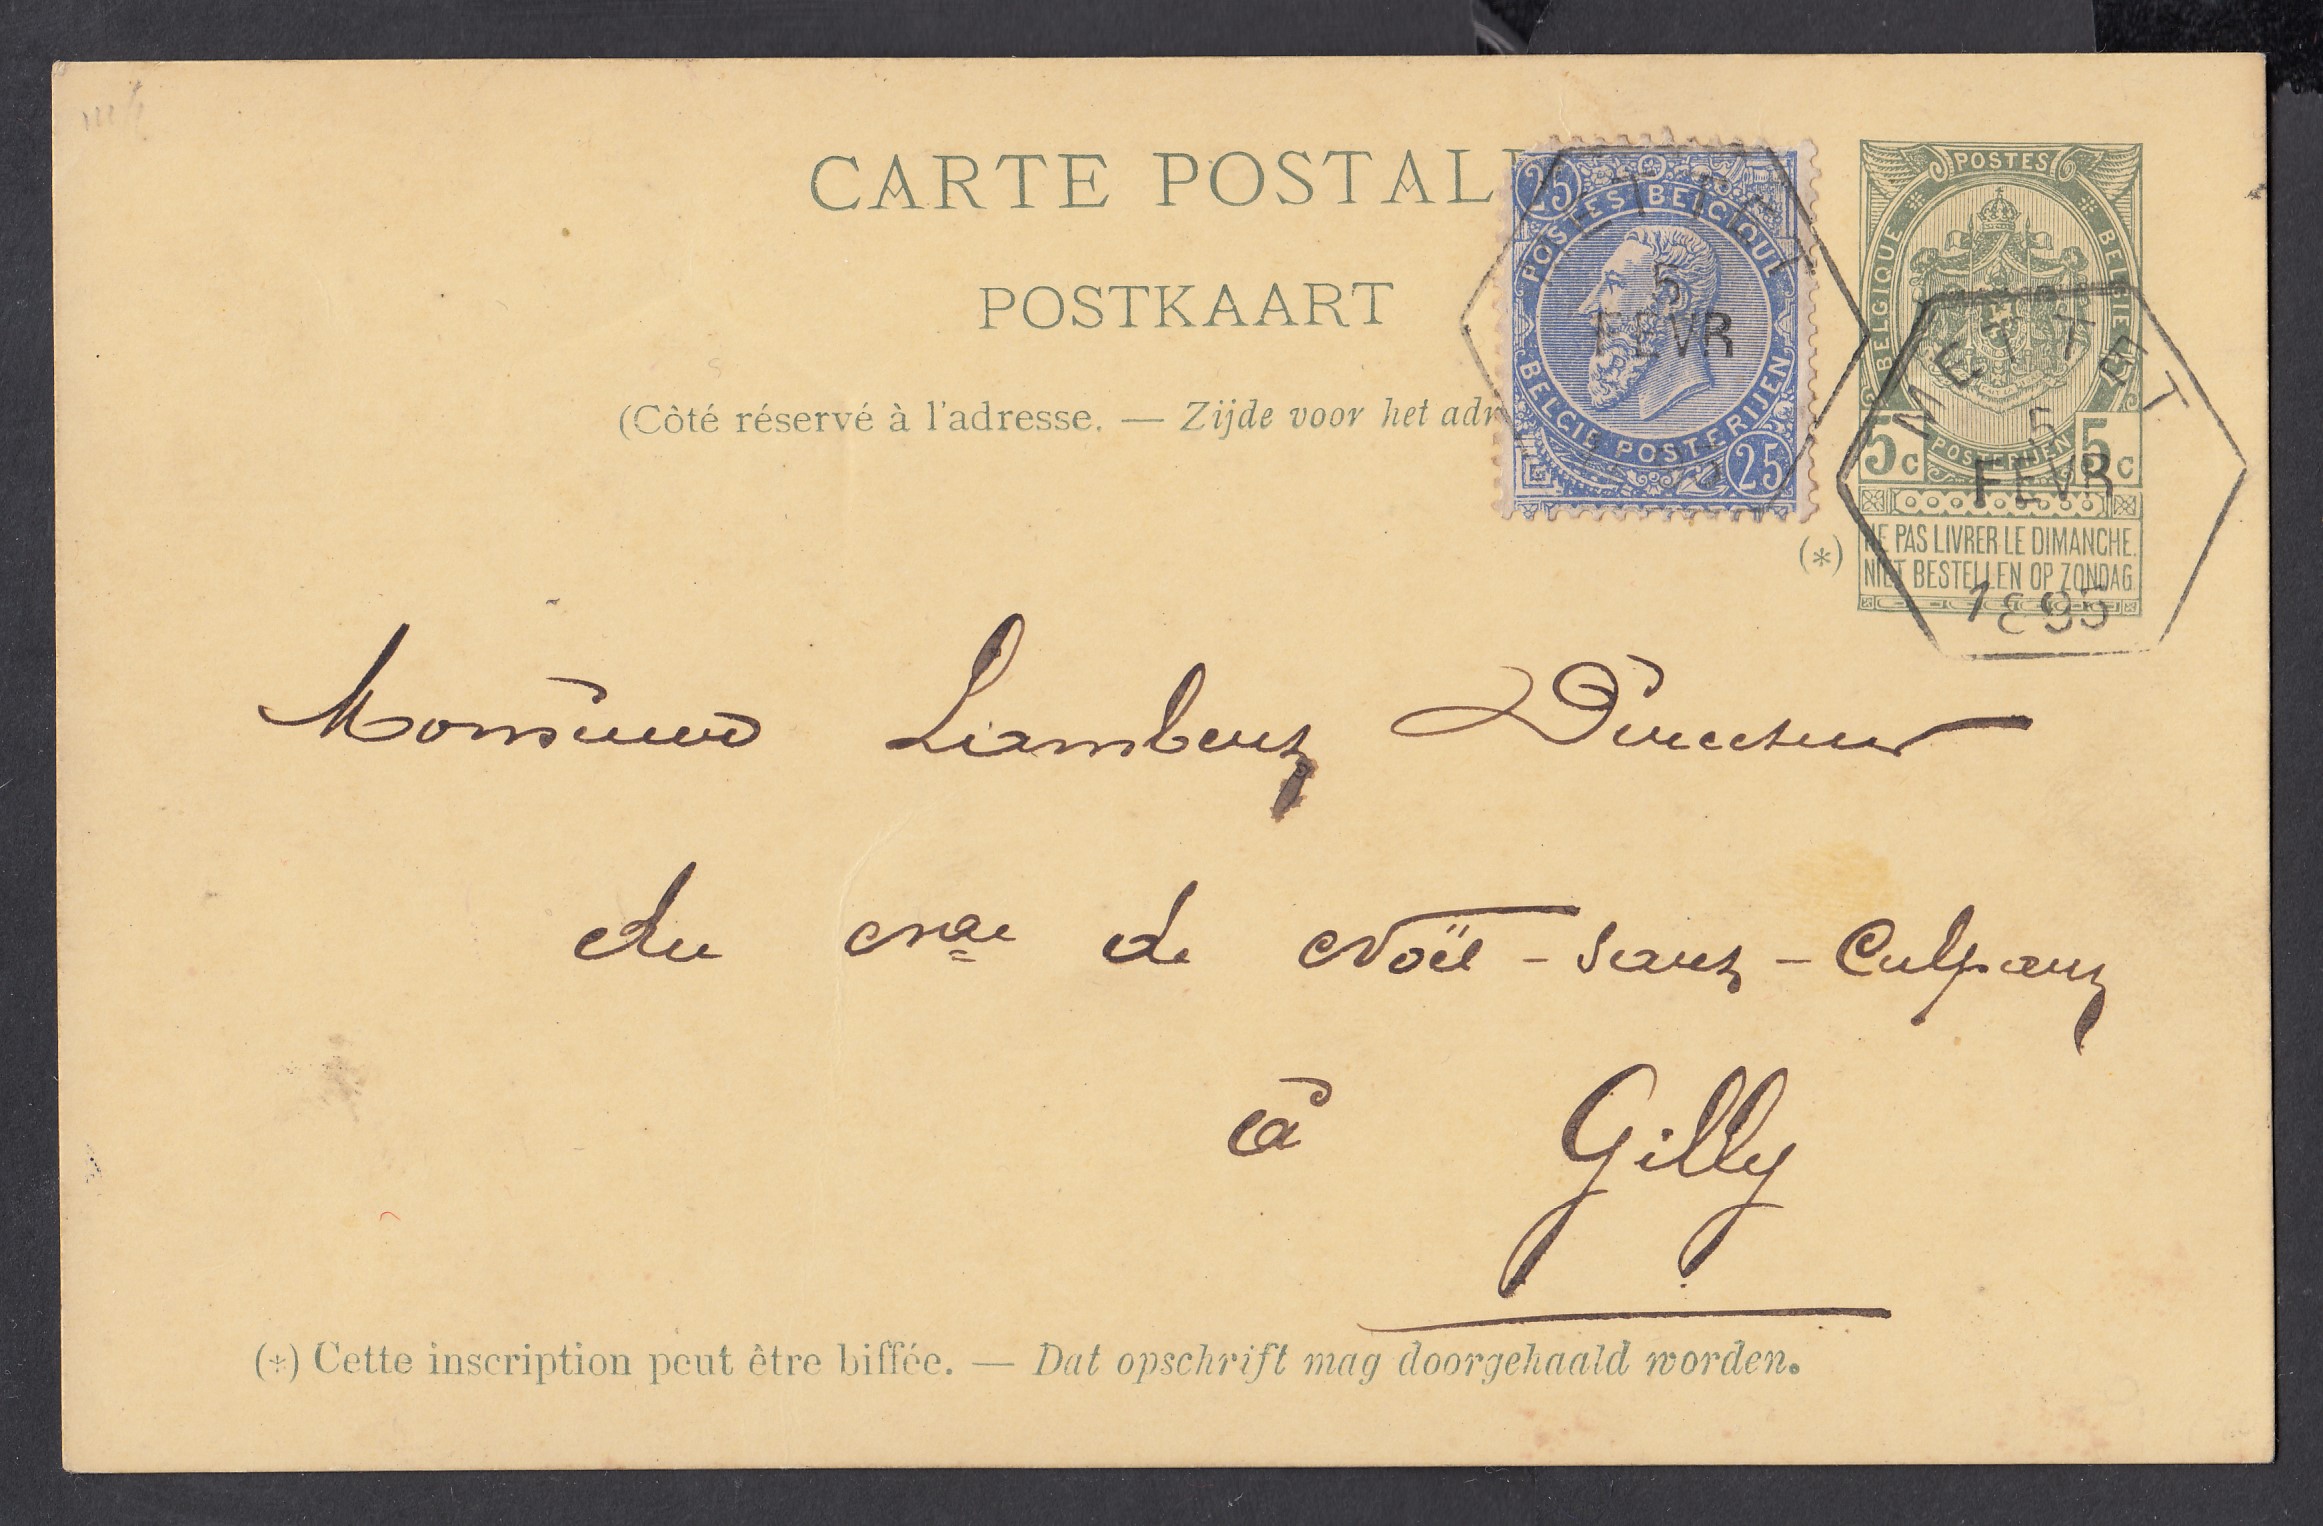 CARTE POSTAL
POSTKAART
(Côté réservé à l'adresse. — Zijde voor het adr
25
POSTES BELGIQUE
BELGIE POSTERIJEN
25
METTET
5
FEVR
POSTES
BELGIQUE * * BELGIE
5c POSTERIJEN 5c
METTET
5
FEVR
1895
(*) NE PAS LIVRER LE DIMANCHE.
NIET BESTELLEN OP ZONDAG
Monsieur Directeur
du de Noël-Sart-Culpart
à Gilly
(*) Cette inscription peut être biffée. — Dat opschrift mag doorgehaald worden.